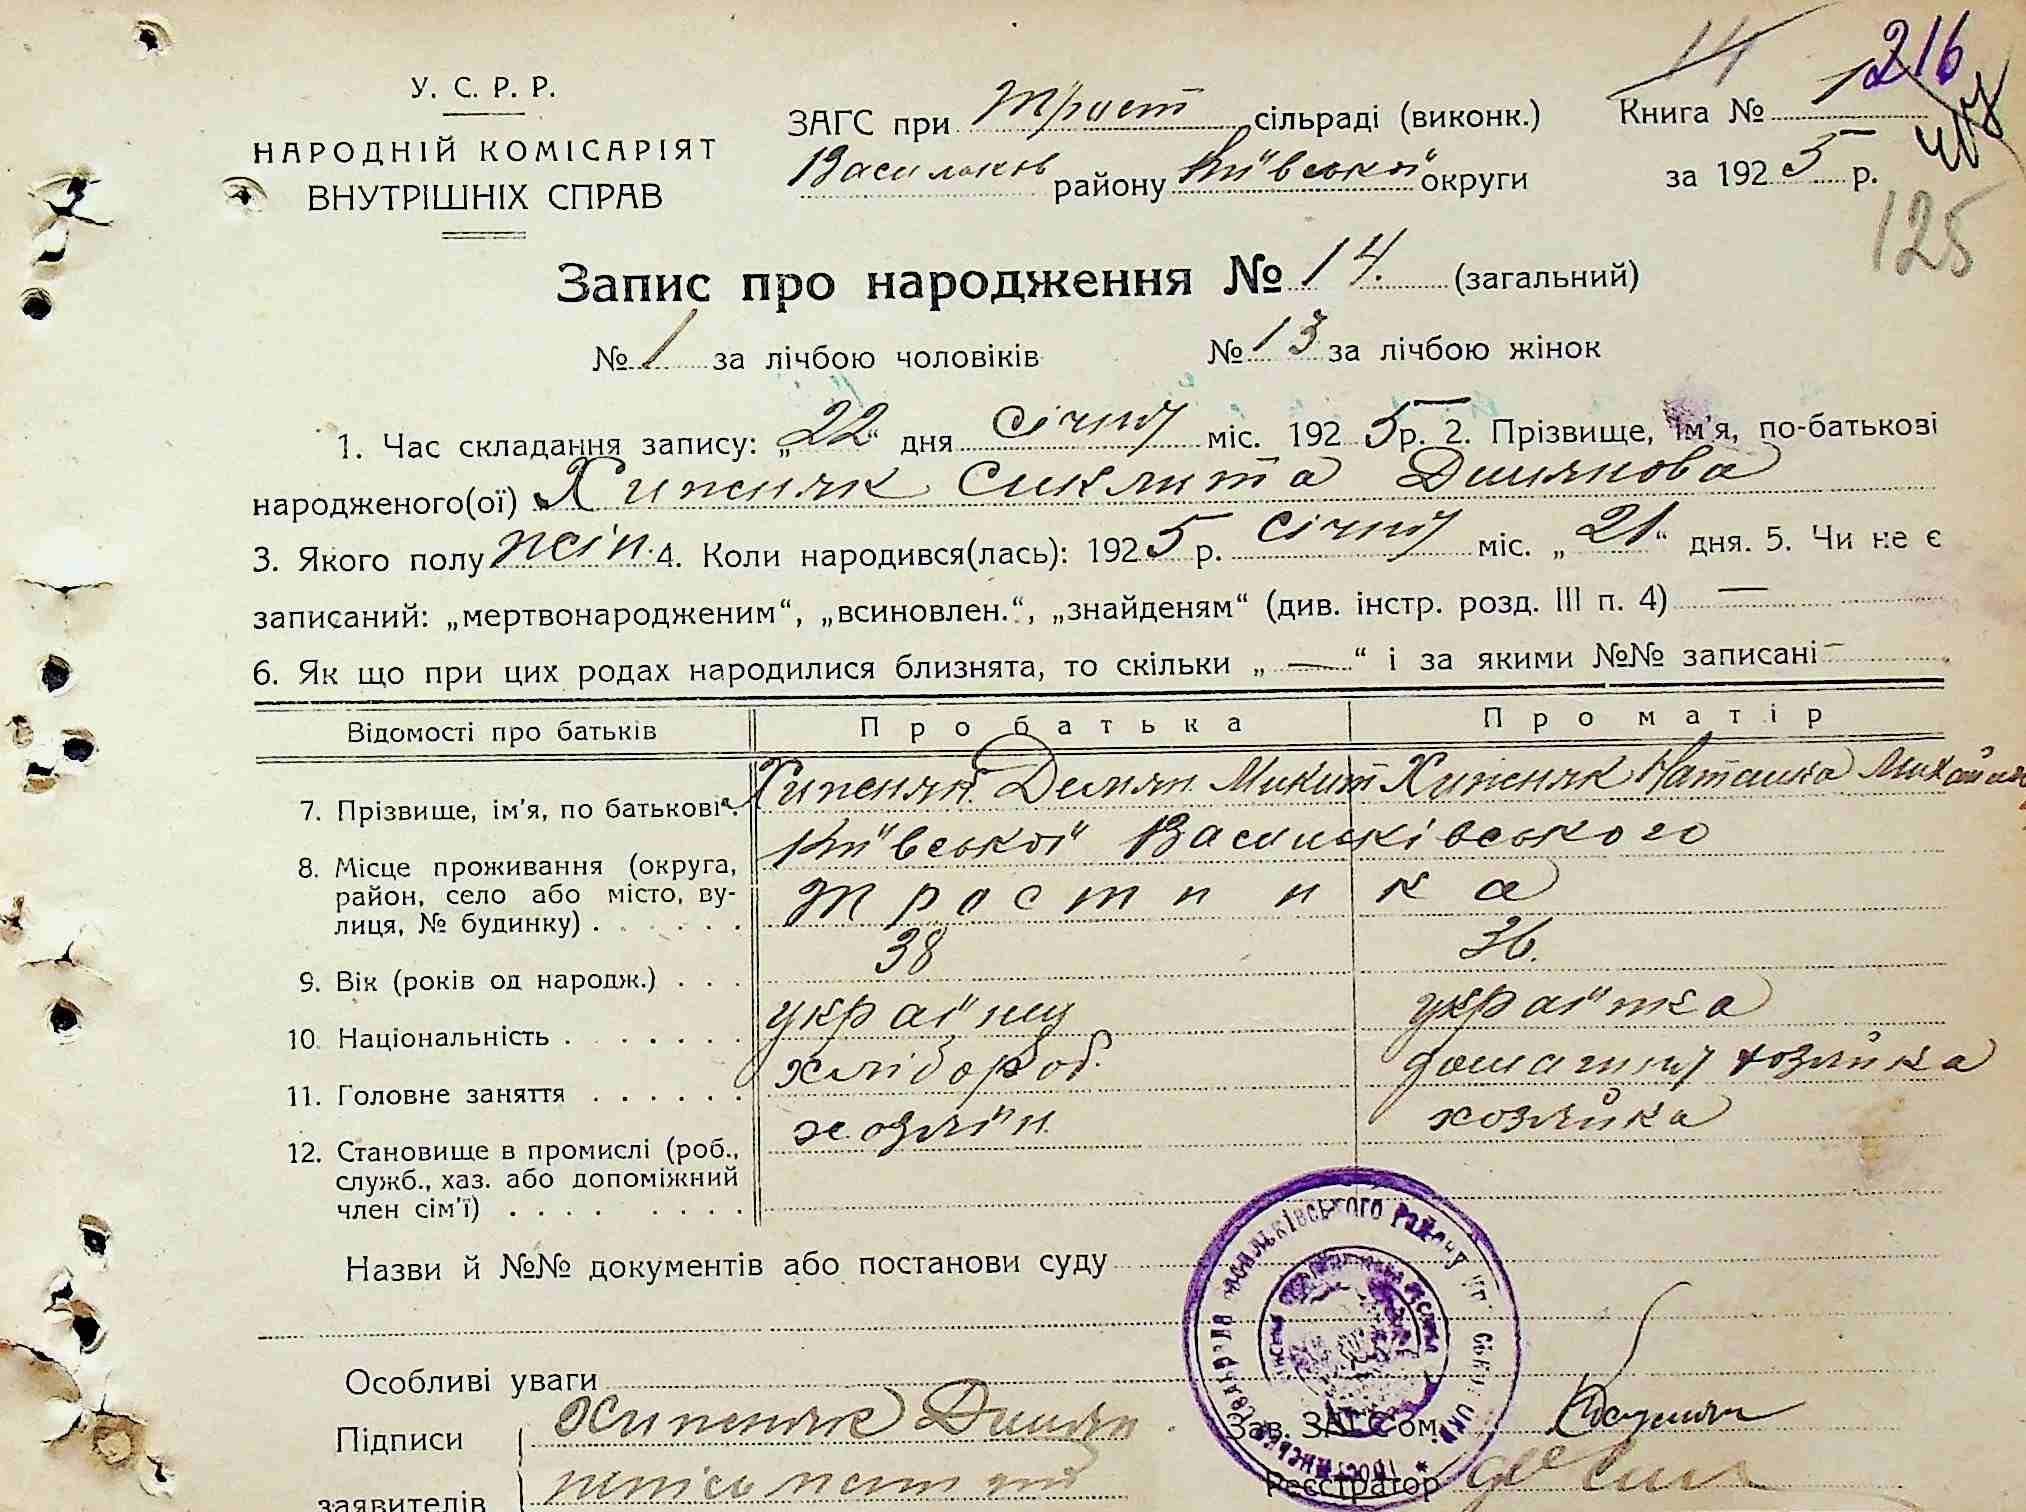 14 216
У. С. Р. Р.
НАРОДНІЙ КОМІСАРІЯТ
ВНУТРІШНІХ СПРАВ
ЗАГС при Трост сільраді (виконк.)
Васильков району Київської округи
Книга № 1
за 1925 р.
125
Запис про народження № 14. (загальний)
№ 1 за лічбою чоловіків № 13 за лічбою жінок
1. Час складання запису: „22“ дня січня міс. 1925 р. 2. Прізвище, ім'я, по-батькові
народженого(ої) Хипеняк Сиклита Димянова
3. Якого полу жін. 4. Коли народився(лась): 1925 р. січня міс. „21“ дня. 5. Чи не є
записаний: „мертвонародженим“, „всиновлен.“, „знайденям“ (див. інстр. розд. III п. 4) —
6. Як що при цих родах народилися близнята, то скільки „—“ і за якими №№ записані –
Відомості про батьків Про батька Про матір
7. Прізвище, ім'я, по батькові. Хипеняк Демян Микит Хипеняк Наталка
8. Місце проживання (округа, Київської Васильківського
район, село або місто, ву-
лиця, № будинку) . . . . . . Тростинка
9. Вік (років од народж.) . . . 38 36.
10. Національність . . . . . . . українц українка
11. Головне заняття . . . . . . хлібороб. домашня хозяйка
12. Становище в промислі (роб., хозяїн хозяйка
служб., хаз. або допоміжний
член сім'ї) . . . . . . . .
Назви й №№ документів або постанови суду
Особливі уваги
Підписи Хипеняк Димян
заявителів
Зав. ЗАГС'ом
Реєстратор